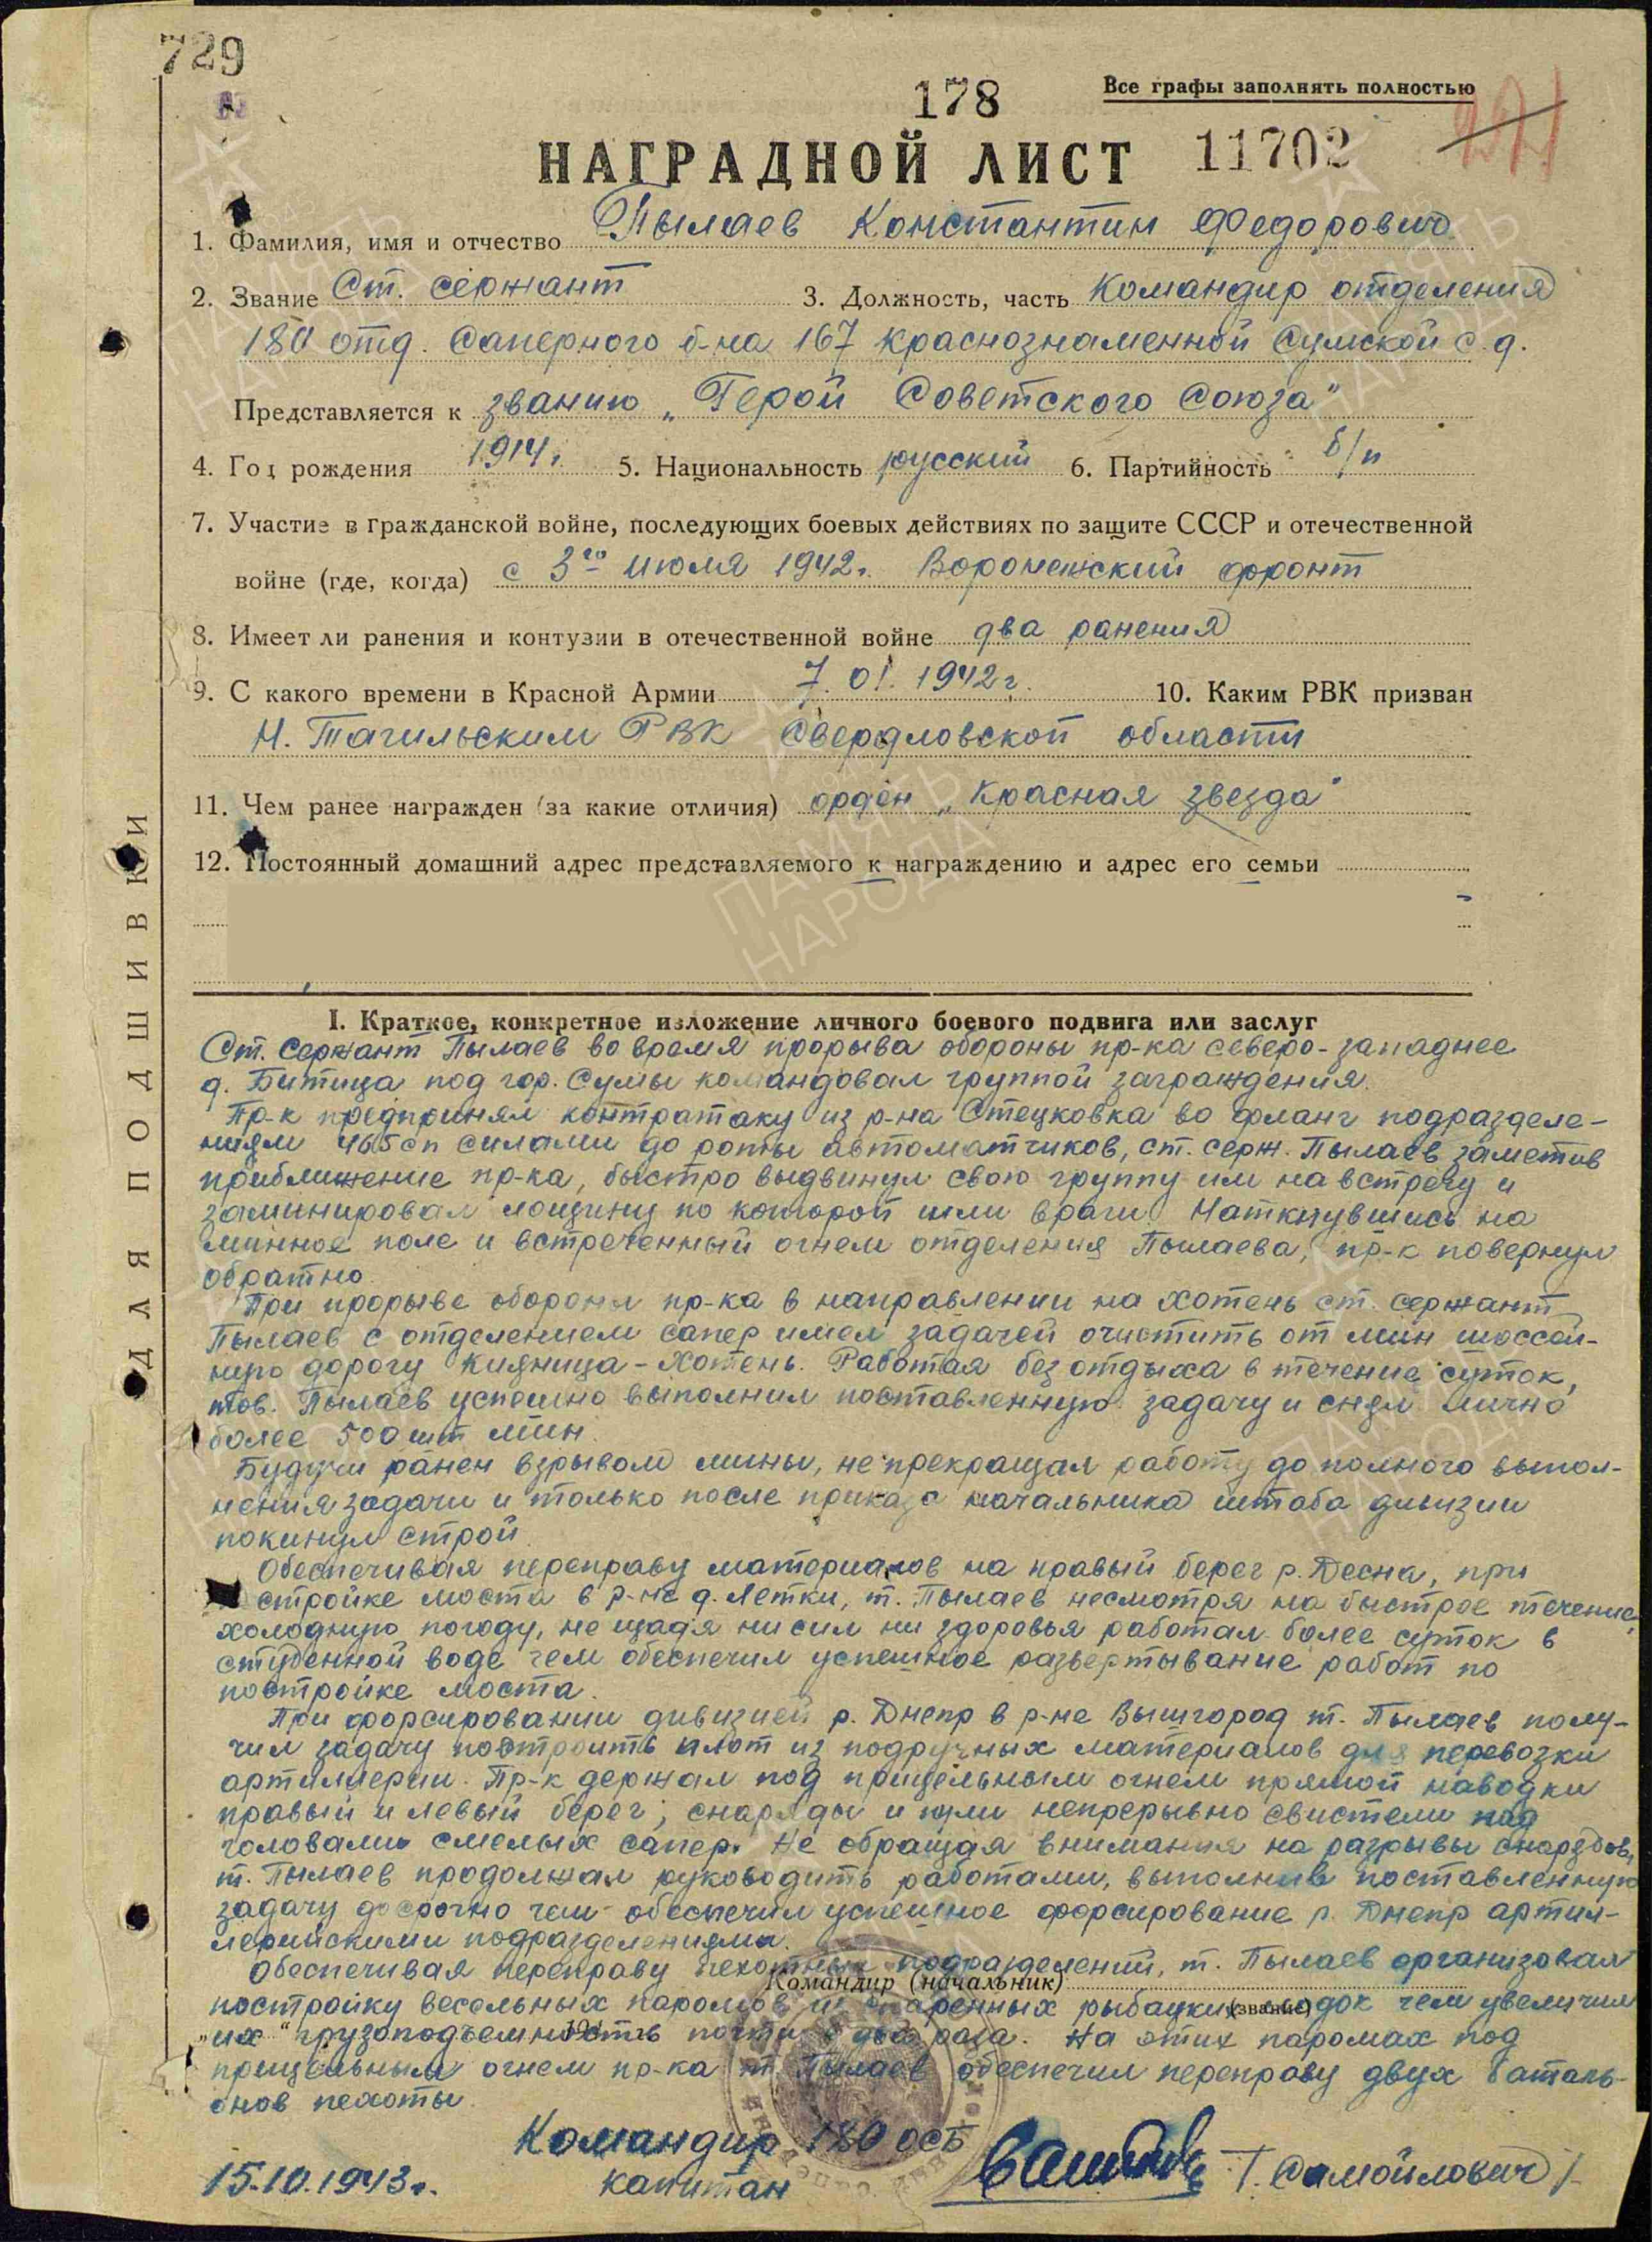 729
178
Все графы заполнять полностью
НАГРАДНОЙ ЛИСТ 11702
1. Фамилия, имя и отчество Пылаев Константин Федорович
2. Звание Ст. сержант 3. Должность, часть Командир отделения
180 отд. Саперного б-на 167 Краснознаменной Сумской с.д.
Представляется к званию „Герой Советского Союза"
4. Год рождения 1914 г. 5. Национальность русский 6. Партийность б/п
7. Участие в гражданской войне, последующих боевых действиях по защите СССР и отечественной
войне (где, когда) с 3го июля 1942 г. Воронежский фронт
8. Имеет ли ранения и контузии в отечественной войне два ранения
9. С какого времени в Красной Армии 7.01.1942 г. 10. Каким РВК призван
Н. Тагильским РВК Свердловской области
11. Чем ранее награжден (за какие отличия) орден „Красная звезда"
12. Постоянный домашний адрес представляемого к награждению и адрес его семьи
ДЛЯ ПОДШИВКИ
I. Краткое, конкретное изложение личного боевого подвига или заслуг
Ст. Сержант Пылаев во время прорыва обороны пр-ка северо-западнее
д. Битица под гор. Сумы командовал группой заграждения.
Пр-к предпринял контратаку из р-на Стецковка во фланг подразделе-
ниям 465 сп силами до роты автоматчиков, ст. серж. Пылаев заметив
приближение пр-ка, быстро выдвинул свою группу им на встречу и
заминировал лощину по которой шли враги. Наткнувшись на
минное поле и встреченный огнем отделения Пылаева, пр-к повернул
обратно.
При прорыве обороны пр-ка в направлении на Хотень ст. сержант
Пылаев с отделением сапер имел задачей очистить от мин шоссей-
ную дорогу Кияница-Хотень. Работая без отдыха в течение суток,
тов. Пылаев успешно выполнил поставленную задачу и снял лично
более 500 шт мин.
Будучи ранен взрывом мины, не прекращал работу до полного выпол-
нения задачи и только после приказа начальника штаба дивизии
покинул строй.
Обеспечивая переправу материалов на правый берег р. Десна, при
стройке моста в р-не д. Летки, т. Пылаев несмотря на быстрое течение,
холодную погоду, не щадя ни сил ни здоровья работал более суток в
студенной воде чем обеспечил успешное развертывание работ по
постройке моста.
При форсировании дивизией р. Днепр в р-не Вышгород т. Пылаев полу-
чил задачу построить плот из подручных материалов для перевозки
артиллерии. Пр-к держал под прицельным огнем прямой наводки
правый и левый берег; снаряды и пули непрерывно свистели над
головами смелых сапер. Не обращая внимания на разрывы снарядов,
т. Пылаев продолжал руководить работами, выполнив поставленную
задачу досрочно чем обеспечил успешное форсирование р. Днепр артил-
лерийскими подразделениями.
Обеспечивая переправу пехотных подразделений, т. Пылаев организовал
Командир (начальник)
постройку весельных паромов из спаренных рыбацких лодок чем увеличил
(звание)
их грузоподъемность почти в два раза. На этих паромах под
прицельным огнем пр-ка т. Пылаев обеспечил переправу двух баталь-
онов пехоты.
Командир 180 ОСБ
15.10.1943 г. капитан /Самойлович/
ПАМЯТЬ НАРОДА